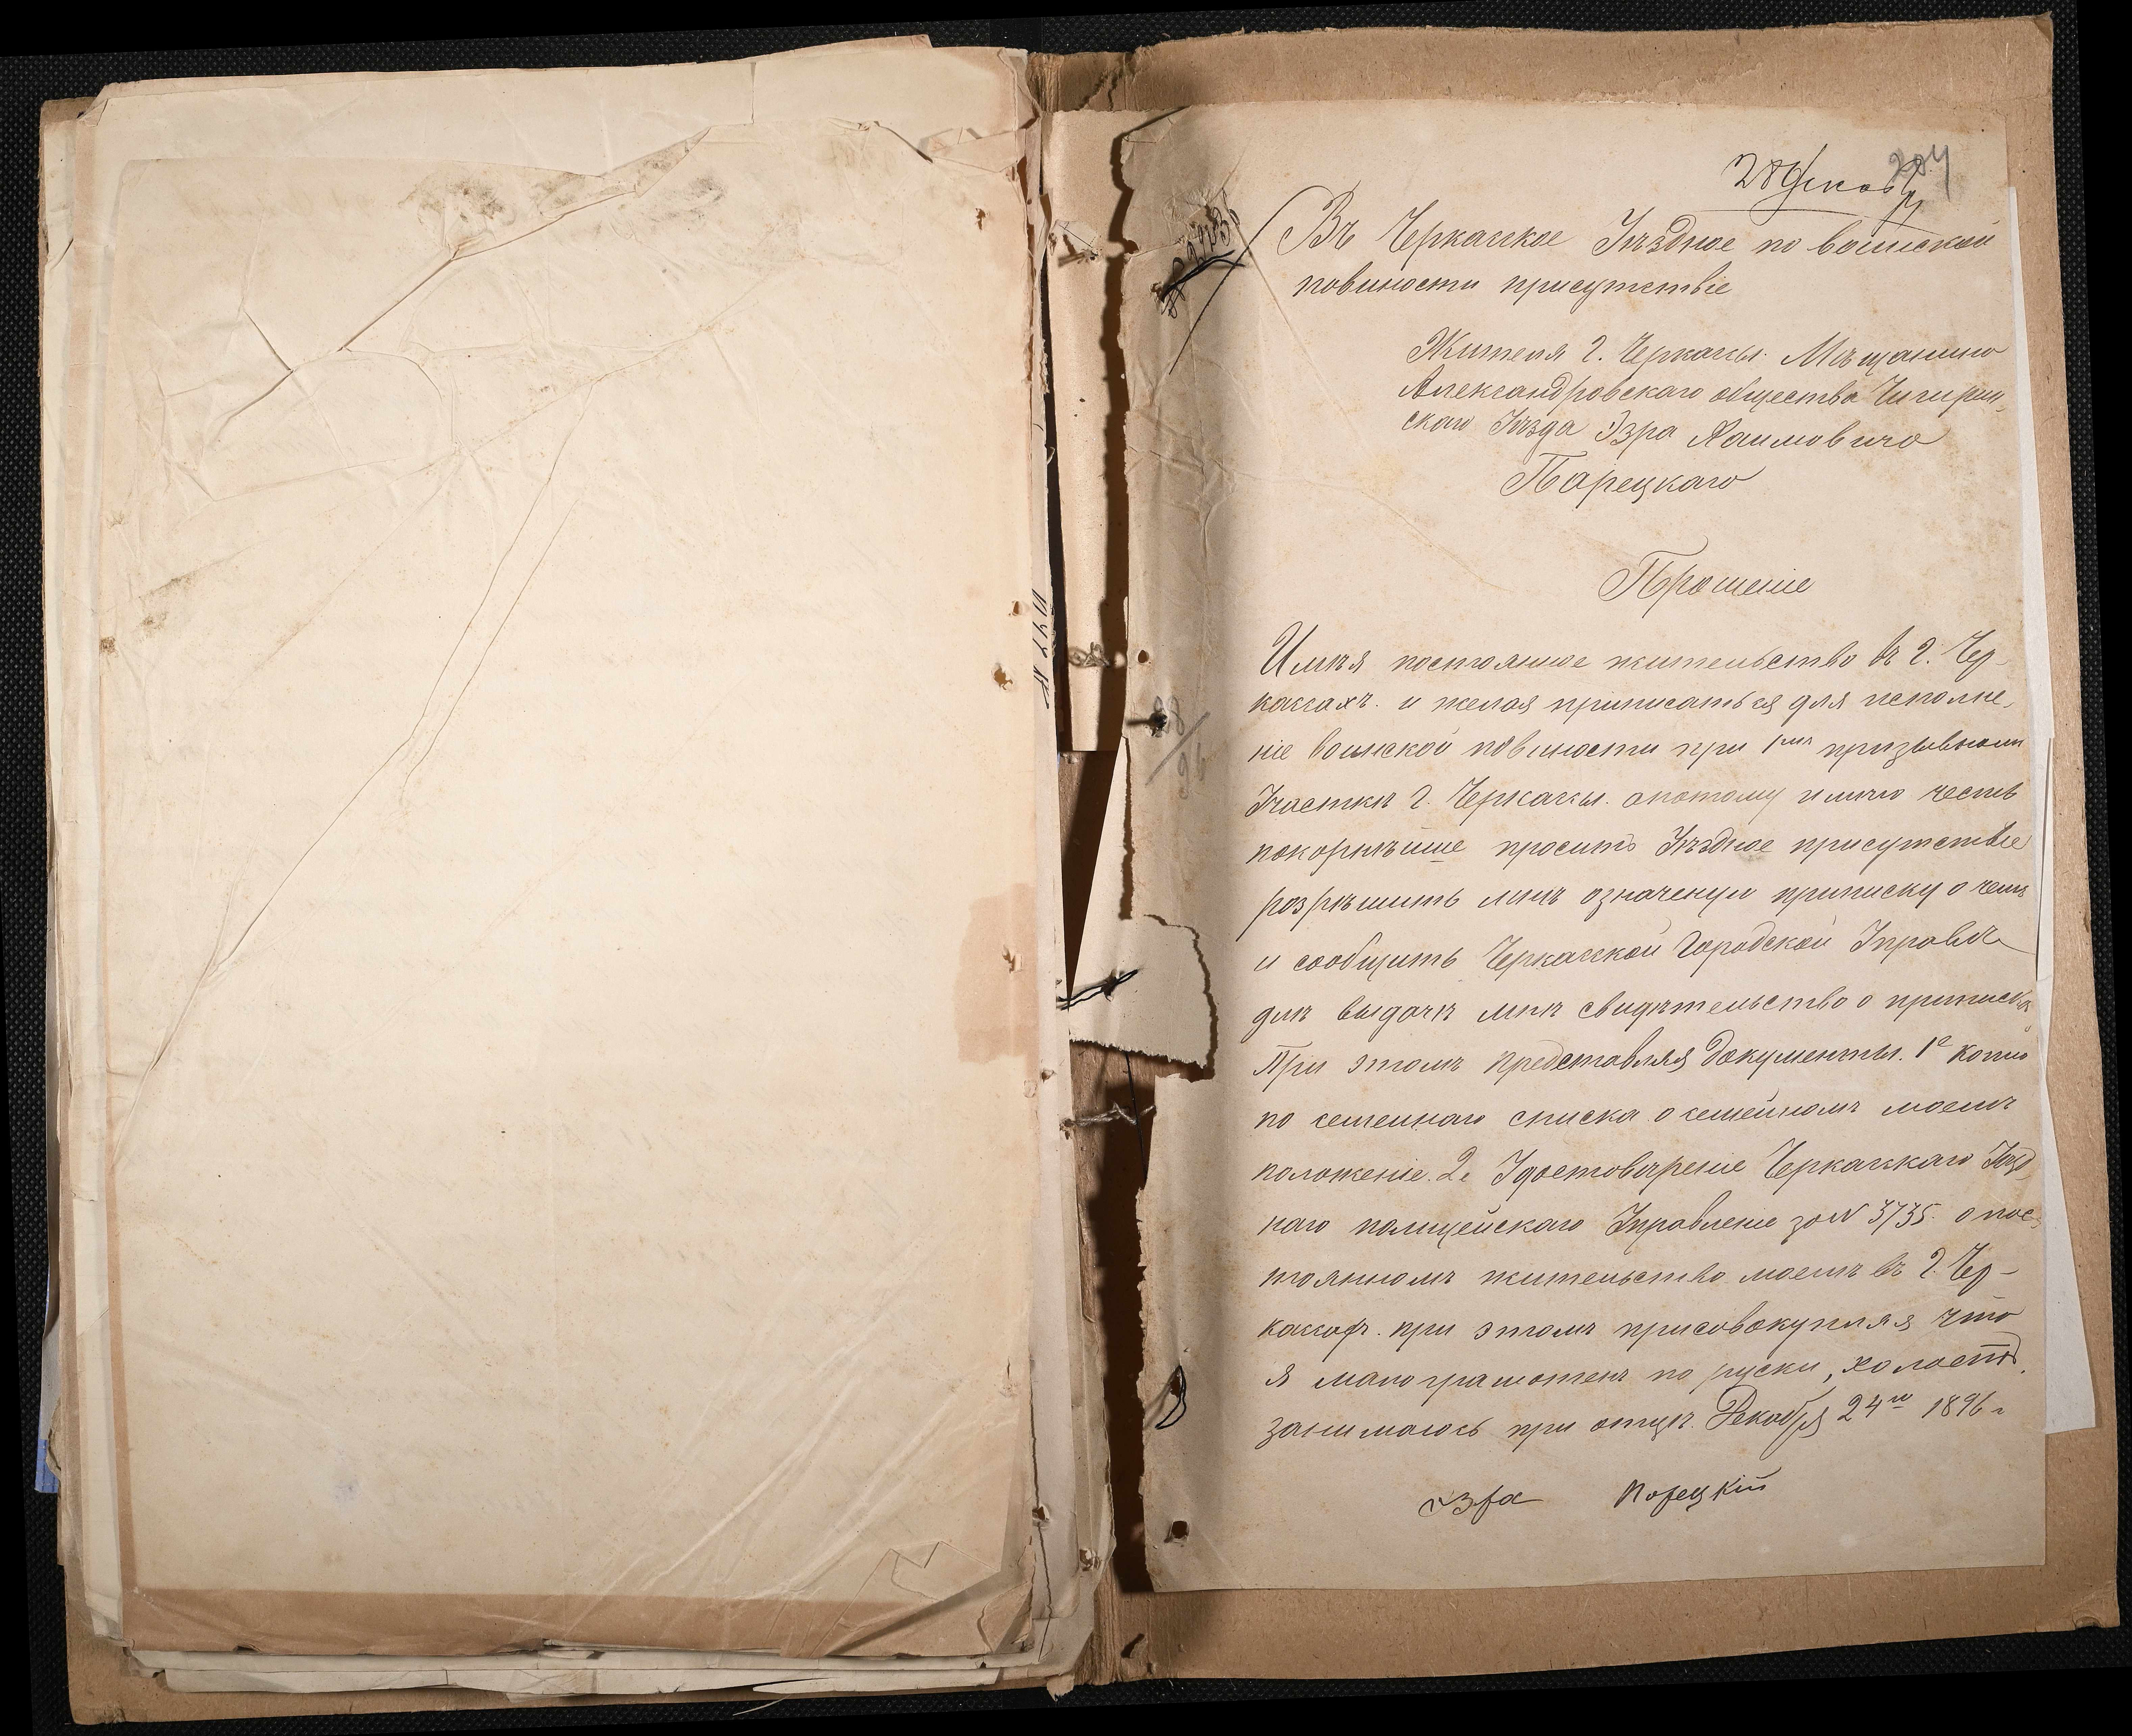 28 Декабр
204
Въ Черкаское Уѣздное по воинской
повиности присутствіе
Жителя г. Черкассы. Мѣщанина
Александровскаго общества Чигирин-
скаго Уѣзда Эзра Хаимовича
Парецкаго
Прошеніе
Имѣя постоянное жительство въ г. Чер-
кассахъ. и желая приписаться для исполне-
ніе воинской повиности при 1мъ призывномъ
Участкѣ г. Черкассы. апотому имѣю честь
покорнѣише просить Уѣздное присутствіе
розрѣшить мнѣ означеную приписку о чемъ
и сообщить Черкасской Городской Управѣ
длѣ выдачѣ мнѣ свидѣтельство о припискѣ
При этомъ представляя документы. 1е копію
по семеинаго списка о семейномъ моемъ
положеніе. 2е Удостовѣреніе Черкасскаго Уѣзд-
наго полицейскаго Управленіе за № 3735. о пос-
тоянномъ жительство моемъ въ г. Чер-
кассахъ. при этомъ присовокупляя что
я малограмотенъ по руски, холостъ.
занимаюсь при отцѣ. Декабря 24го 1896 г
Эзра Порецкій
28/96